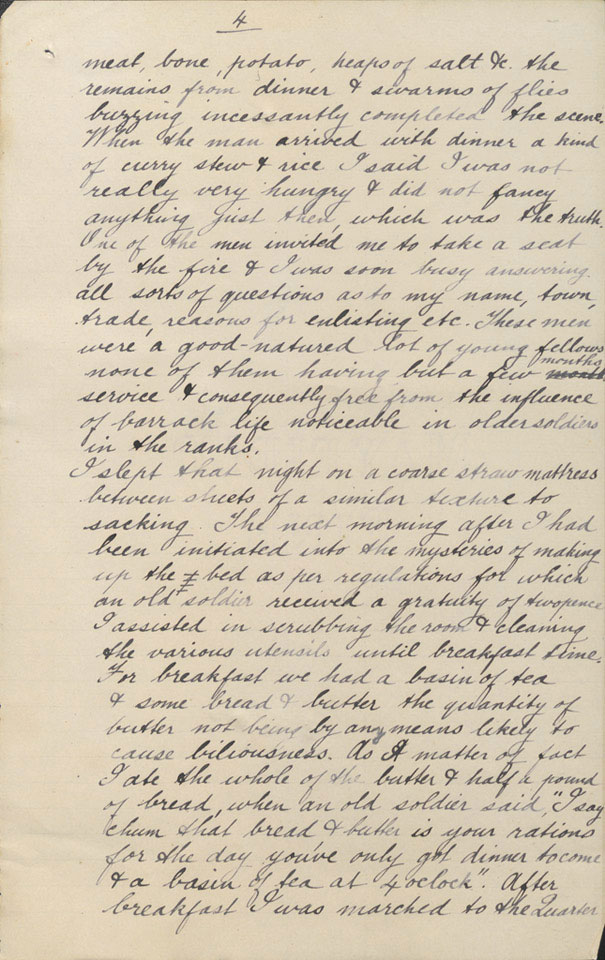 4
meat, bone, potato, heaps of salt &c. the
remains from dinner & swarms of flies
buzzing incessantly completed the scene.
When the man arrived with dinner a kind
of curry stew & rice I said I was not
really very hungry & did not fancy
anything just then, which was the truth.
One of the men invited me to take a seat
by the fire & I was soon busy answering
all sorts of questions as to my name, town,
trade, reasons for enlisting etc. These men
were a good-natured lot of young fellows
none of them having but a few months
service & consequently free from the influence
of barrack life noticeable in older soldiers
in the ranks.
I slept that night on a coarse straw mattress
between sheets of a similar texture to
sacking. The next morning after I had
been initiated into the mysteries of making
up the bed as per regulations for which
an old soldier received a gratuity of twopence
I assisted in scrubbing the room & cleaning
the various utensils until breakfast time.
For breakfast we had a basin of tea
& some bread & butter the quantity of
butter not being by any means likely to
cause biliousness. As A matter of fact
I ate the whole of the butter & half a pound
of bread, when an old soldier said, "I say
chum that bread & butter is your rations
for the day you've only got dinner to come
& a basin of tea at 4 oclock". After
breakfast I was marched to the Quarter